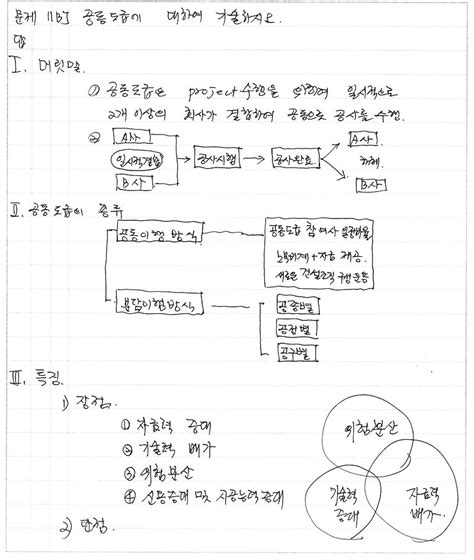 문제 11B) 공동도급에 대하여 기술하시오.
답
I. 머릿말.
① 공동도급은 project 수행을 위하여 일시적으로
2개 이상의 회사가 결합하여 공동으로 공사를 수행.
②
A사
일시적결합
B사
공사시행
공사완료
A사
해체
B사
II. 공동도급의 종류
공동이행 방식
공동도급 참여사 일정비율
노무비계+자금 제공
새로운 건설조직 구성운용
분담이행방식
공종별
공정별
공구별
III. 특징.
1) 장점.
① 자금력 증대
② 기술력 배가
③ 위험분산
④ 신용증대 및 시공능력증대
위험분산
기술력 증대
자금력 배가
2) 단점.